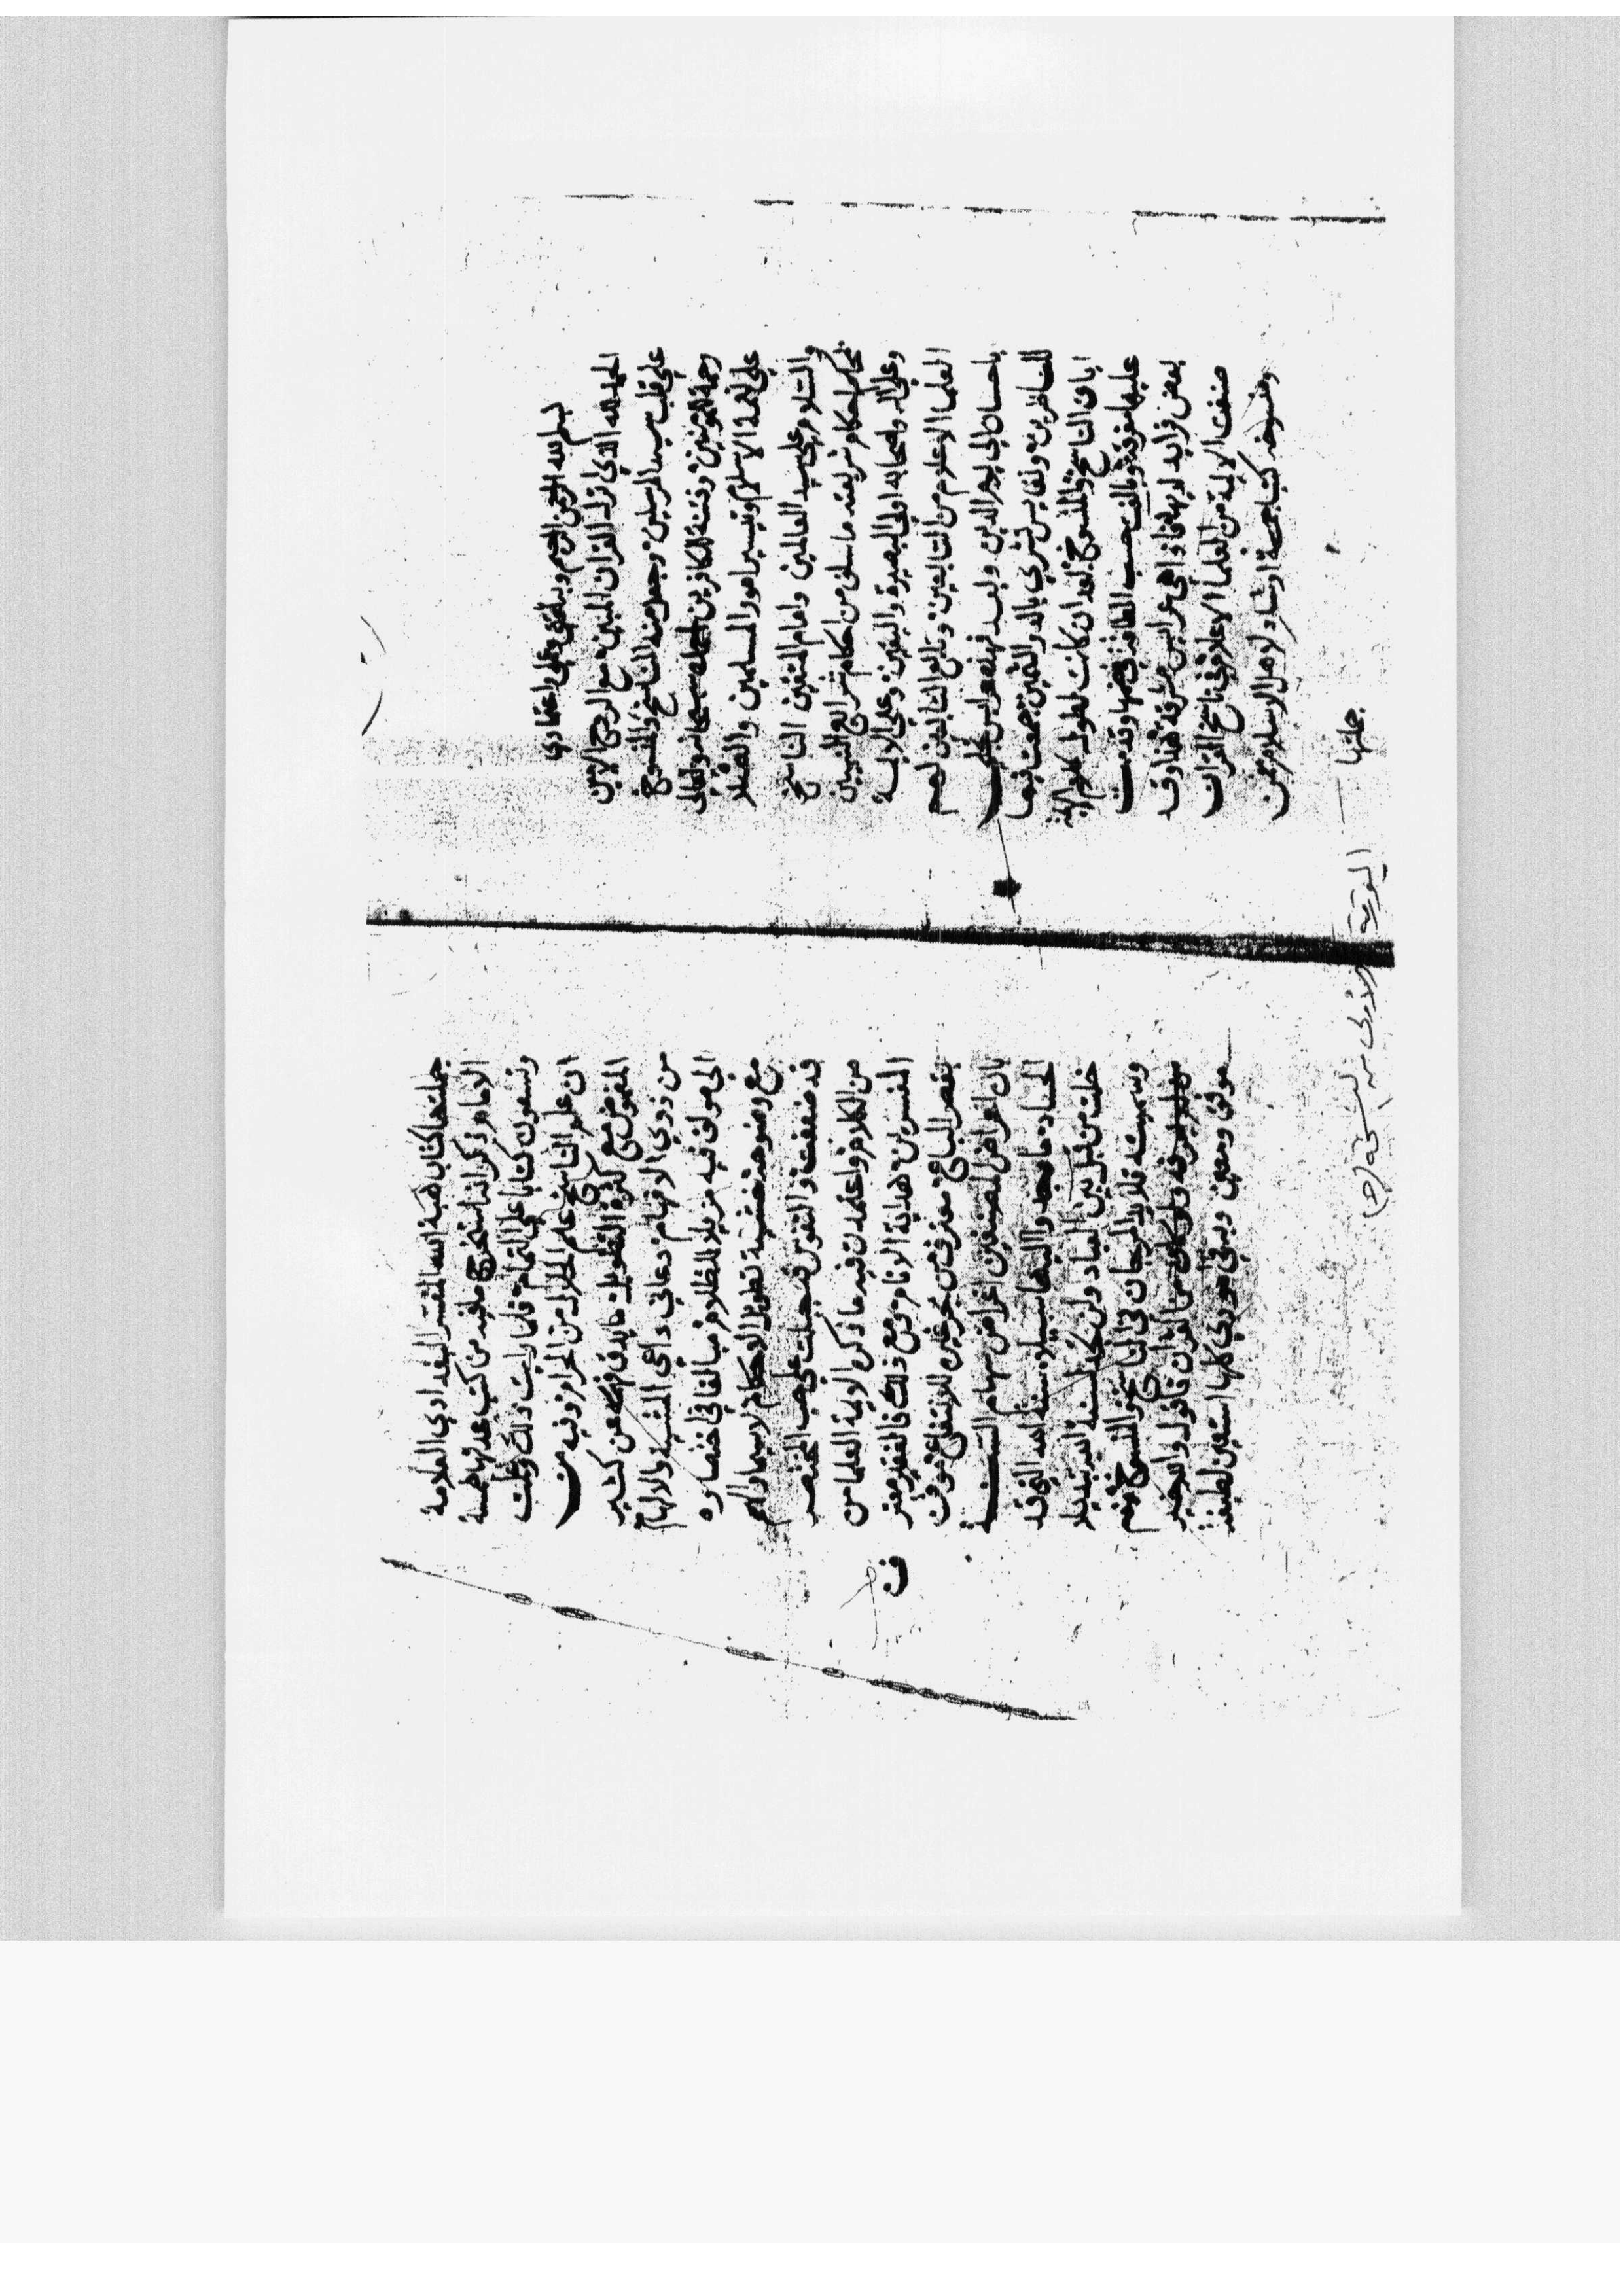 بسم الله الرحمن الرحيم وبه ثقتي وعليه اعتمادي
الحمد لله الذي نزل القران المبين مع الروح الامين
على قلب سيد المرسلين وجعل منه الناسخ والمنسوخ
رحمة للمومنين وفتنة للكافرين سبحانه وتعالى
على نعمة الاسلام وتيسير امور المسلمين والصلاة
والسلام على سيد العالمين وامام المتقين الناسخ
بمحكم احكام شريعته ما سلف من احكام شرايع النبيين
وعلى اله واصحابه اولي البصيرة واليقين وعلى الايمة
العلما الاعلام من التابعين وتابع التابعين لهم
باحسان الى يوم الدين وبعد فهذه عرايس تجلت
للناظرين ونفايس تشرى بالدر الثمين جمعت فيها
اياة الناسخ والمنسوخ بعد ان كانت لطول كلام الايمة
عليها متفرقة وبالغت حسب الطاقة في ضمها وقدمت
بعض فرايد لديها فاذا هي عرايس مشرقة هذا وقد
صنفت الايمة من العلما الاعلام في ناسخ القران
ومنسوخه كتبا جمة ارشاد لاهل الاسلام فمن
جملتها
جملتها كتاب هبة الله المفسر البغدادي العلامة
الامام ذكر انه استخرج ما فيه من كتب عدتها خمسة
وتسعون كتابا على التمام فلما رايت ذلك وعلمت
ان علم الناسخ علم الحلال من الحرام وفيه من
الغموض مع كثرة التطويل ما يدق فهمه عن كثير
من ذوي الافهام دعاني داعي المشيية والالهام
الى مولف فيه مزيلا للظلام مبالغا في اختصاره
مع وضوحه خشية تطويل الاحكام لا سيما والهمم
قد ضعفت والنفوس قد جبلت على حب المختصر
من الكلام واعتمدت فيه ما ذكره الايمة العلما من
المفسرين هداية الانام ومع ذلك فالفقير معترف
بقصر الباع مغترف من بحر غيره للانتفاع موقن
بان اعراض المصنفين اغراض سهام السنة
الحساد ما وجدوا اليها سبيلا سنة الله التي قد
خلت من قبل بين العباد ولن تجد لسنة الله تبديلا
وسميته قلايد المرجان في الناسخ والمنسوخ
من القران فاقول والله خير
موفق ومعين وبه في اموري كلها استعين
الورقة الاولى من النسخة (ح)